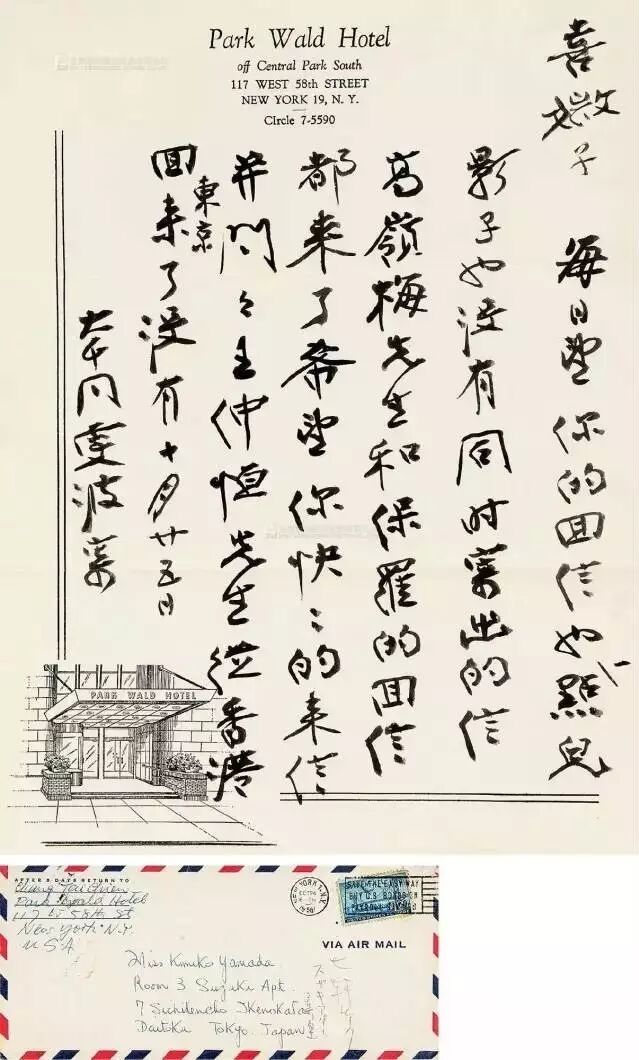 Park Wald Hotel
off Central Park South
117 WEST 58th STREET
NEW YORK 19, N. Y.
CIrcle 7-5590
喜媺子 每日望你的回信也一點兒
影子也没有同时寄出的信
高嶺梅先生和保羅的回信
都来了希望你快〻的来信
并問〻王仲恒先生從香港
回東京来了没有十月廿五日
大千同雯波寄
PARK WALD HOTEL
AFTER 5 DAYS RETURN TO
Chang Tai Chien
Park Wald Hotel
117 W 58th St
New York N.Y.
USA
NEW YORK, N.Y.
SAVE THE EASY WAY
BUY U.S. BONDS ON
PAYROLL SAVINGS
VIA AIR MAIL
Miss Kimiko Yamada
Room 3 Suzuki Apt.
7 Ikenohata
Tokyo. Japan